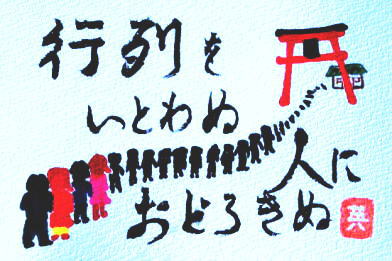 行列を
いとわぬ
人に
おどろきぬ
英